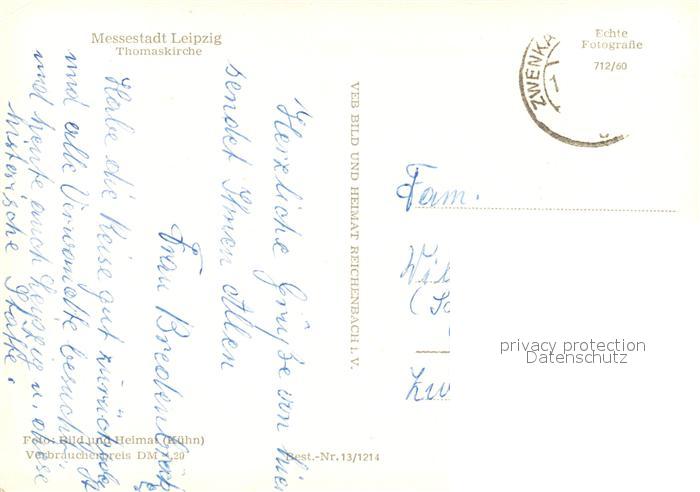 Messestadt Leipzig
Thomaskirche
Herzliche Grüße von hier
sendet Ihnen Allen
Frau
Habe die Reise gut zurück
und alle Verwandte besucht.
und heute auch Leipzig u. diese
historische Stätte.
Foto: Bild und Heimat (Kühn)
Verbraucherpreis DM 0,20
Best.-Nr. 13/1214
VEB BILD UND HEIMAT REICHENBACH i. V.
Echte
Fotografie
712/60
ZWENKA
Fam.
privacy protection
Datenschutz